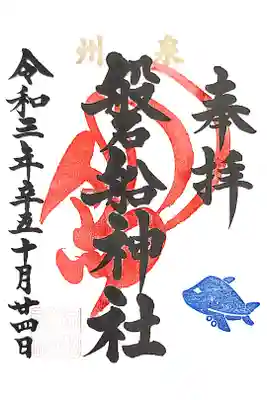 奉拝
泉州
磐船神社
令和三年辛丑十月廿四日